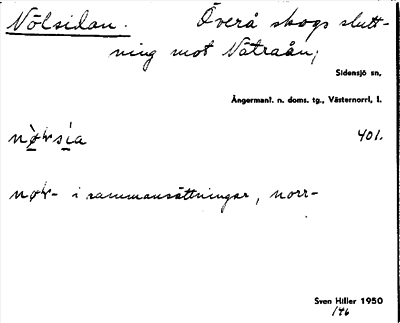 Nölsidan. Överå skogs slutt-
ning mot Nätraån,
Sidensjö sn,
Ångermanl. n. doms. tg., Västernorrl, l.
401.
i sammansättningar, norr-
Sven Hiller 1950
/46